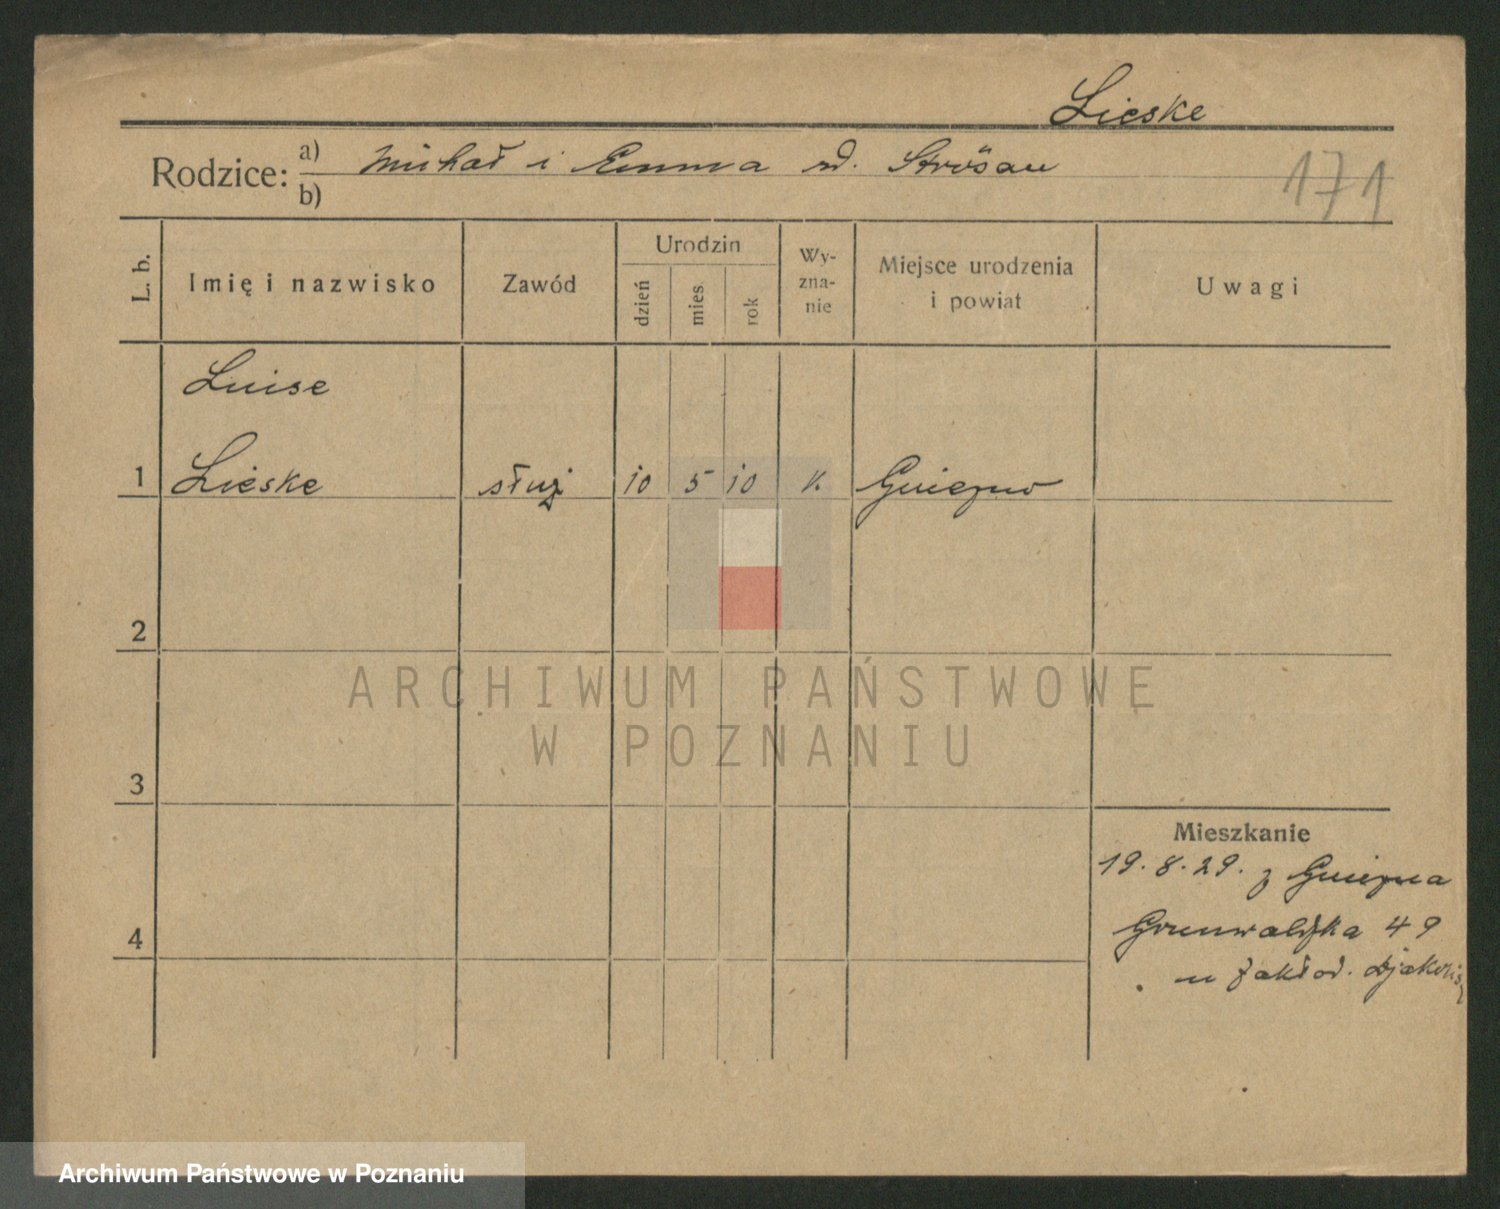 Lieske
Rodzice: a) Michał i Emma rd. Strösau
b)
171
L. b.
Imię i nazwisko
Zawód
Urodzin
dzień
mies
rok
Wy-
zna-
nie
Miejsce urodzenia
i powiat
Uwagi
Luise
1 Lieske służ 10 5 10 K. Gniezno
2
3
4
Mieszkanie
19.8.29. z Gniezna
Grunwaldzka 49
w zakład.
ARCHIWUM PAŃSTWOWE
W POZNANIU
Archiwum Państwowe w Poznaniu